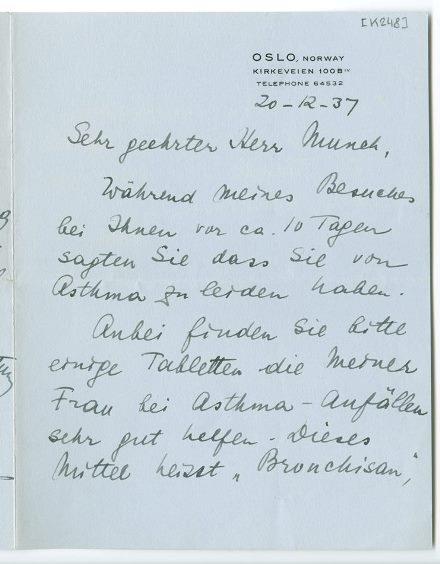 [K248]
OSLO, NORWAY
KIRKEVEIEN 100B IV
TELEPHONE 64532
20-12-37
Sehr geehrter Herr Munch,
Während meines Besuches
bei Ihnen vor ca. 10 Tagen
sagten Sie dass Sie von
Asthma zu leiden haben.
Anbei finden Sie bitte
einige Tabletten die meiner
Frau bei Asthma-Anfällen
sehr gut helfen. Dieses
Mittel heisst „Bronchisan“,